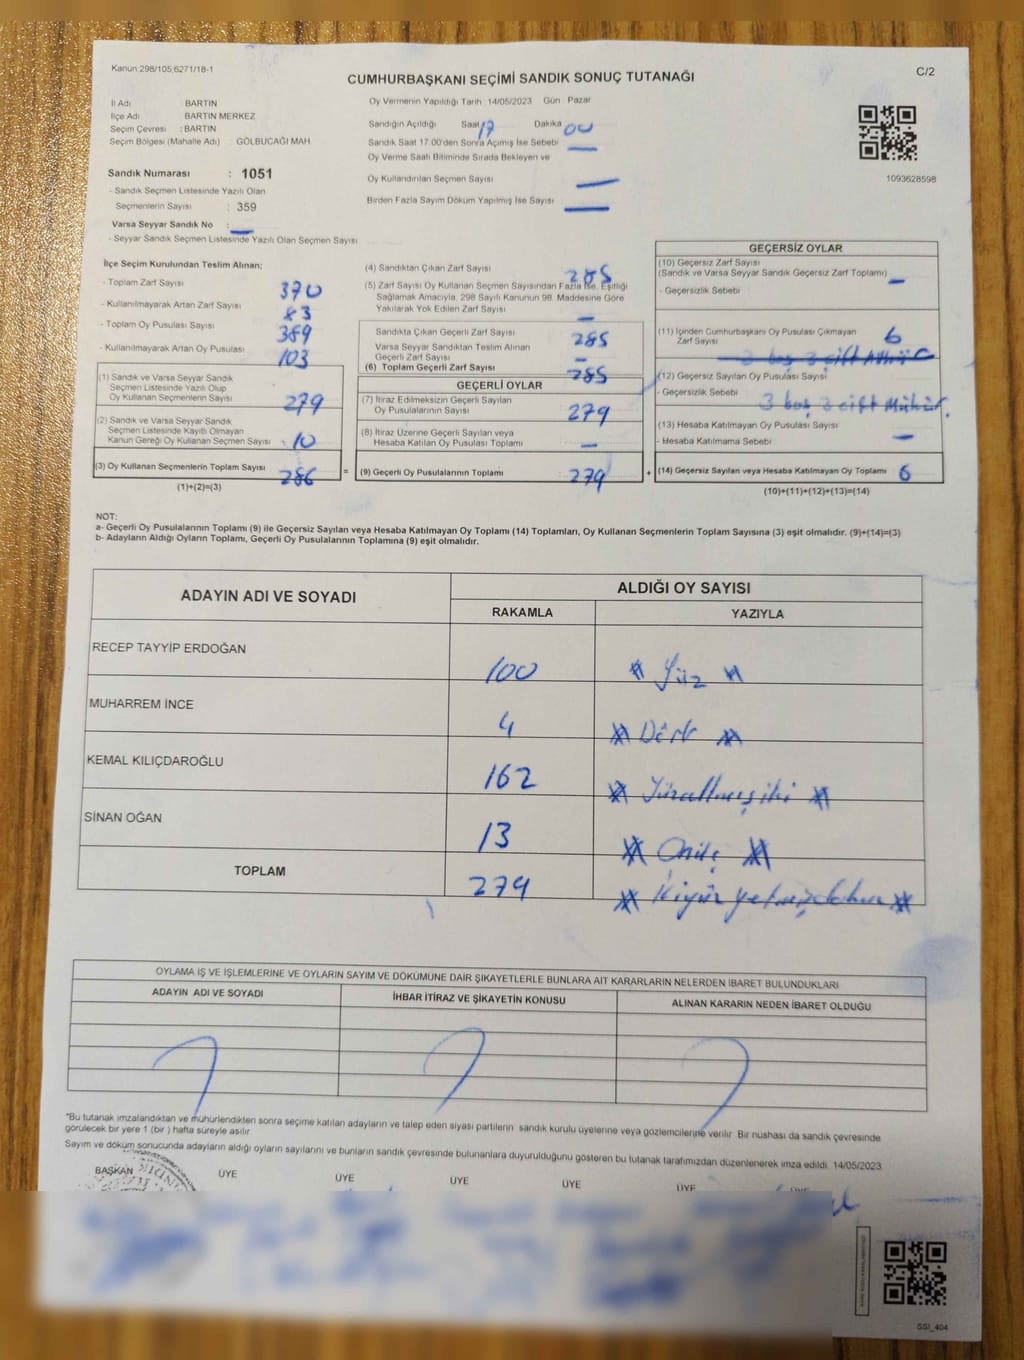 Kanun:298/105;6271/18-1
C/2
CUMHURBAŞKANI SEÇİMİ SANDIK SONUÇ TUTANAĞI
İl Adı BARTIN
İlçe Adı BARTIN MERKEZ
Seçim Çevresi : BARTIN
Seçim Bölgesi (Mahalle Adı) : GÖLBUCAĞI MAH
Sandık Numarası : 1051
- Sandık Seçmen Listesinde Yazılı Olan
Seçmenlerin Sayısı : 359
Varsa Seyyar Sandık No :
- Seyyar Sandık Seçmen Listesinde Yazılı Olan Seçmen Sayısı
Oy Vermenin Yapıldığı Tarih 14/05/2023 Gün Pazar
Sandığın Açıldığı Saat 17 Dakika 00
Sandık Saat 17:00'den Sonra Açılmış İse Sebebi
Oy Verme Saati Bitiminde Sırada Bekleyen ve
Oy Kullandırılan Seçmen Sayısı
Birden Fazla Sayım Döküm Yapılmış İse Sayısı
1093628598
İlçe Seçim Kurulundan Teslim Alınan;
- Toplam Zarf Sayısı 370
- Kullanılmayarak Artan Zarf Sayısı 83
- Toplam Oy Pusulası Sayısı 389
- Kullanılmayarak Artan Oy Pusulası 103
(1) Sandık ve Varsa Seyyar Sandık
Seçmen Listesinde Yazılı Olup
Oy Kullanan Seçmenlerin Sayısı 279
(2) Sandık ve Varsa Seyyar Sandık
Seçmen Listesinde Kayıtlı Olmayan
Kanun Gereği Oy Kullanan Seçmen Sayısı 10
(3) Oy Kullanan Seçmenlerin Toplam Sayısı 286
(1)+(2)=(3)
=
(4) Sandıktan Çıkan Zarf Sayısı 285
(5) Zarf Sayısı Oy Kullanan Seçmen Sayısından Fazla İse, Eşitliği
Sağlamak Amacıyla, 298 Sayılı Kanunun 98. Maddesine Göre
Yakılarak Yok Edilen Zarf Sayısı
Sandıkta Çıkan Geçerli Zarf Sayısı 285
Varsa Seyyar Sandıktan Teslim Alınan
Geçerli Zarf Sayısı
(6) Toplam Geçerli Zarf Sayısı 285
GEÇERLİ OYLAR
(7) İtiraz Edilmeksizin Geçerli Sayılan
Oy Pusulalarının Sayısı 279
(8) İtiraz Üzerine Geçerli Sayılan veya
Hesaba Katılan Oy Pusulası Toplamı
(9) Geçerli Oy Pusulalarının Toplamı 279
+
GEÇERSİZ OYLAR
(10) Geçersiz Zarf Sayısı
(Sandık ve Varsa Seyyar Sandık Geçersiz Zarf Toplamı)
- Geçersizlik Sebebi
(11) İçinden Cumhurbaşkanı Oy Pusulası Çıkmayan
Zarf Sayısı 6
(12) Geçersiz Sayılan Oy Pusulası Sayısı
- Geçersizlik Sebebi 3 boş 3 çift Mühür.
(13) Hesaba Katılmayan Oy Pusulası Sayısı
- Hesaba Katılmama Sebebi
(14) Geçersiz Sayılan veya Hesaba Katılmayan Oy Toplamı 6
(10)+(11)+(12)+(13)=(14)
NOT:
a- Geçerli Oy Pusulalarının Toplamı (9) ile Geçersiz Sayılan veya Hesaba Katılmayan Oy Toplamı (14) Toplamları, Oy Kullanan Seçmenlerin Toplam Sayısına (3) eşit olmalıdır. (9)+(14)=(3)
b- Adayların Aldığı Oyların Toplamı, Geçerli Oy Pusulalarının Toplamına (9) eşit olmalıdır.
ADAYIN ADI VE SOYADI
ALDIĞI OY SAYISI
RAKAMLA YAZIYLA
RECEP TAYYİP ERDOĞAN 100 Yüz
MUHARREM İNCE 4 Dört
KEMAL KILIÇDAROĞLU 162 Yüzaltmışiki
SİNAN OĞAN 13 Onüç
TOPLAM 279 İkiyüzyetmişdokuz
OYLAMA İŞ VE İŞLEMLERİNE VE OYLARIN SAYIM VE DÖKÜMÜNE DAİR ŞİKAYETLERLE BUNLARA AİT KARARLARIN NELERDEN İBARET BULUNDUKLARI
ADAYIN ADI VE SOYADI
İHBAR İTİRAZ VE ŞİKAYETİN KONUSU
ALINAN KARARIN NEDEN İBARET OLDUĞU
*Bu tutanak imzalandıktan ve mühürlendikten sonra seçime katılan adayların ve talep eden siyasi partilerin sandık kurulu üyelerine veya gözlemcilerine verilir. Bir nüshası da sandık çevresinde
görülecek bir yere 1 (bir) hafta süreyle asılır.
Sayım ve döküm sonucunda adayların aldığı oyların sayılarını ve bunların sandık çevresinde bulunanlara duyurulduğunu gösteren bu tutanak tarafımızdan düzenlenerek imza edildi. 14/05/2023
BAŞKAN ÜYE ÜYE ÜYE ÜYE ÜYE ÜYE
SSI_404